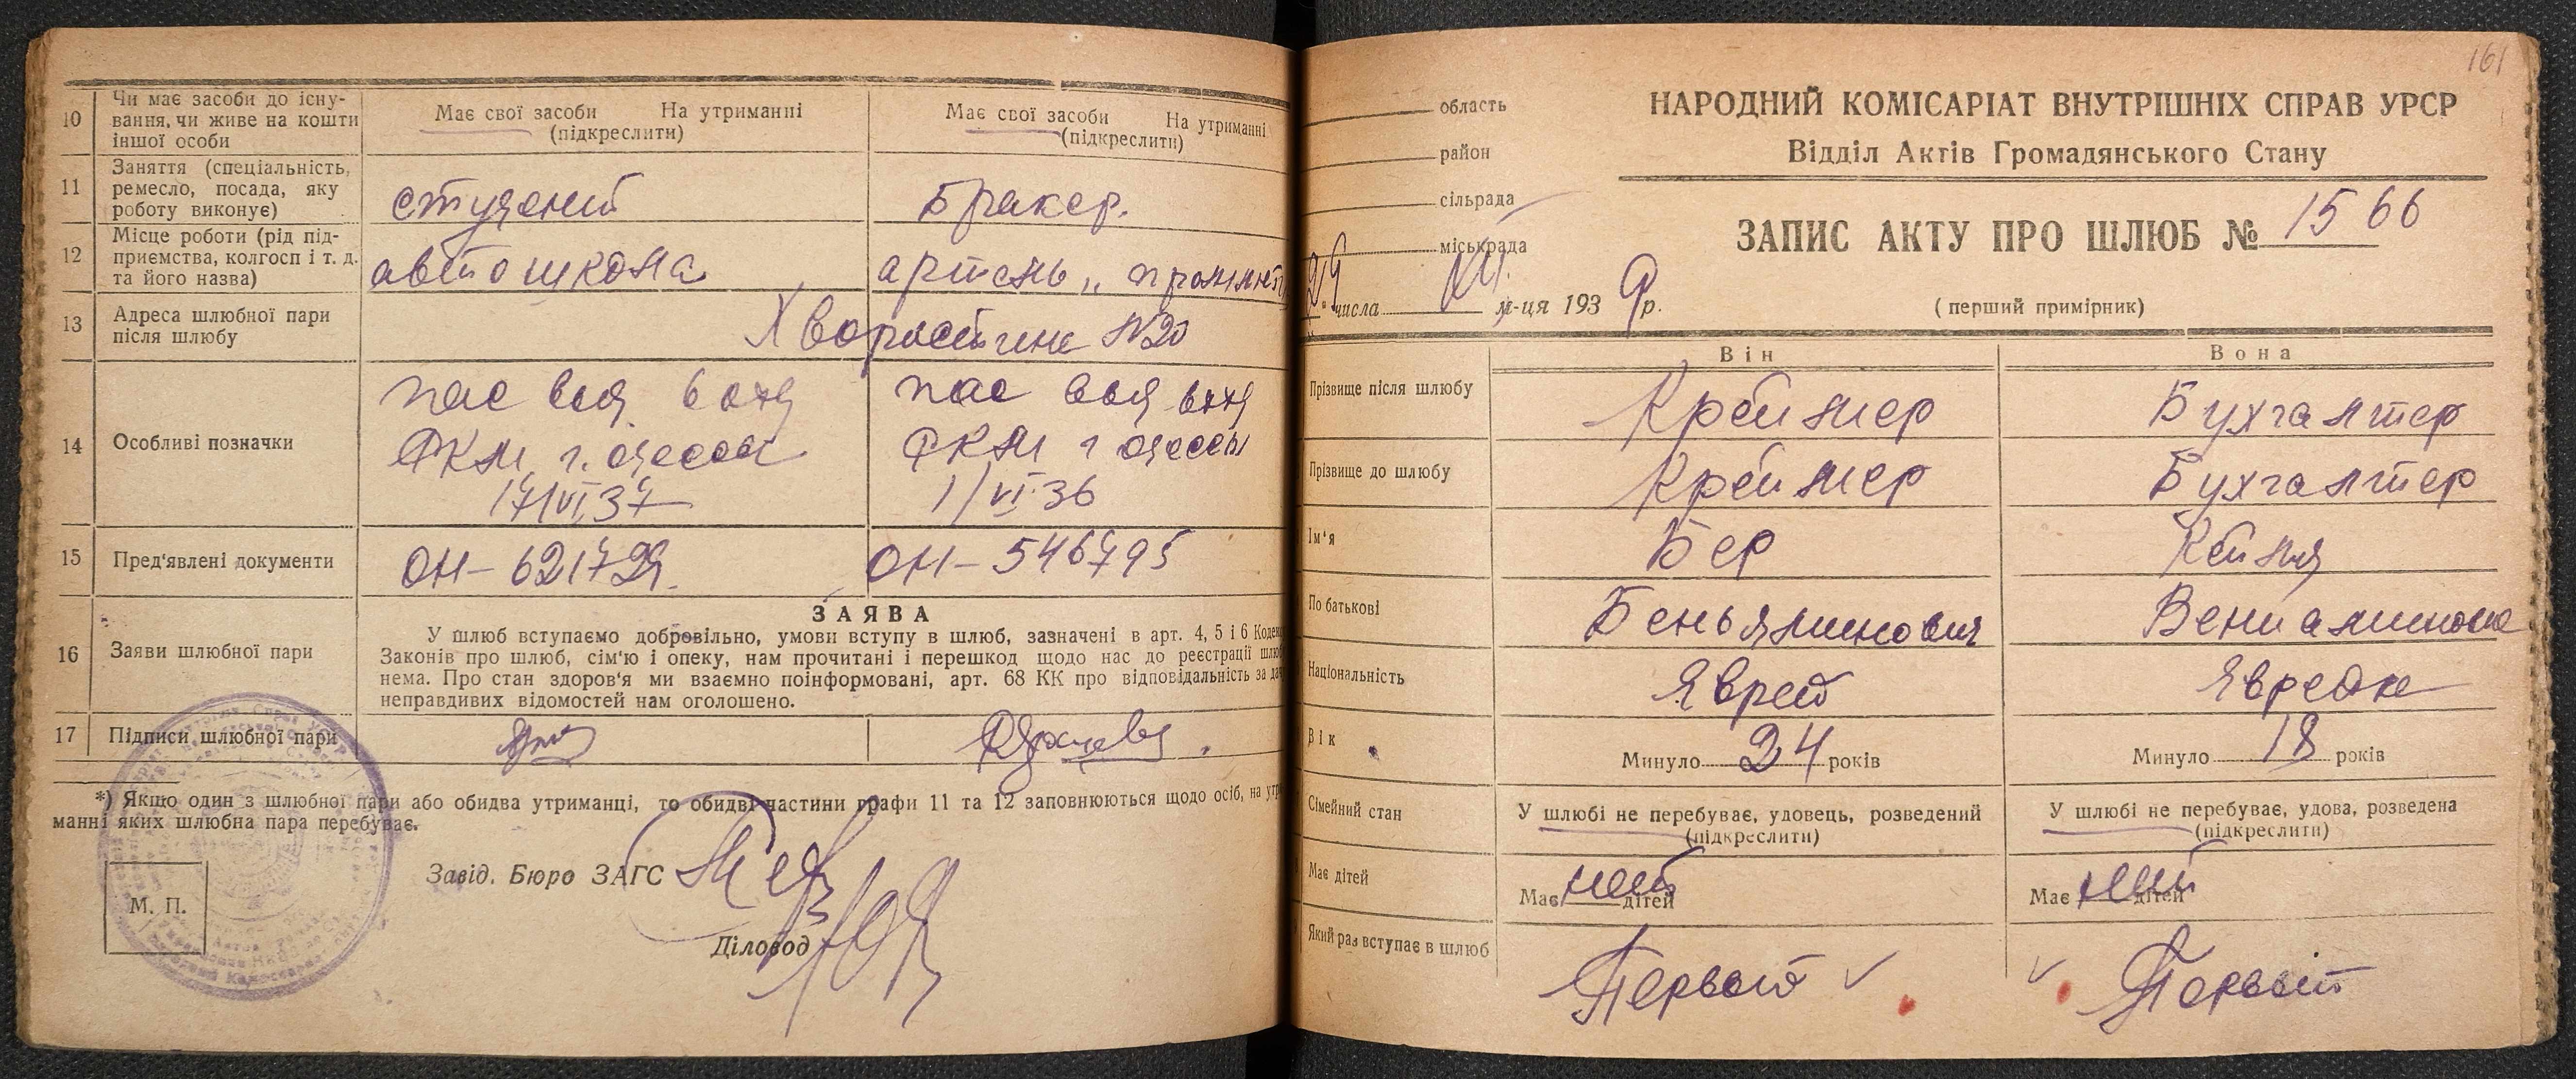 10 Чи має засоби до існу-
вання, чи живе на кошти
іншої особи
Має свої засоби На утриманні
(підкреслити)
Має свої засоби На утриманні
(підкреслити)
11 Заняття (спеціальність,
ремесло, посада, яку
роботу виконує)
студент
Бракер.
12 Місце роботи (рід під-
приємства, колгосп і т. д.
та його назва)
автошкола
артель „
13 Адреса шлюбної пари
після шлюбу
Хворостина №20
14 Особливі позначки
пас выд 6 отд
РКМ г. Одессы
17/VI 37
пас выд 6отд
РКМ г Одессы
1/VI 36
15 Пред'явлені документи
ОН-
ОН- 546795
16 Заяви шлюбної пари
ЗАЯВА
У шлюб вступаємо добровільно, умови вступу в шлюб, зазначені в арт. 4, 5 і 6
Законів про шлюб, сім'ю і опеку, нам прочитані і перешкод щодо нас до реєстрації
нема. Про стан здоров'я ми взаємно поінформовані, арт. 68 КК про відповідальність за
неправдивих відомостей нам оголошено.
17 Підписи шлюбної пари
*) Якщо один з шлюбної пари або обидва утриманці, то обидві частини графи 11 та 12 заповнюються щодо осіб, на
манні яких шлюбна пара перебуває.
Завід. Бюро ЗАГС
М. П.
Діловод
161
область
район
сільрада
міськрада
НАРОДНИЙ КОМІСАРІАТ ВНУТРІШНІХ СПРАВ УРСР
Відділ Актів Громадянського Стану
ЗАПИС АКТУ ПРО ШЛЮБ № 1566
29 числа XII м-ця 1939 р.
(перший примірник)
Він Вона
Прізвище після шлюбу Креймер Бухгалтер
Прізвище до шлюбу Креймер Бухгалтер
Ім'я Бер Кейля
По батькові Беньяминович Вениаминовна
Національність Яврей Яврейка
Вік Минуло 24 років Минуло 18 років
Сімейний стан
У шлюбі не перебуває, удовець, розведений
(підкреслити)
У шлюбі не перебуває, удова, розведена
(підкреслити)
Має дітей Має нет дітей Має нет дітей
Який раз вступає в шлюб
Первый Первый